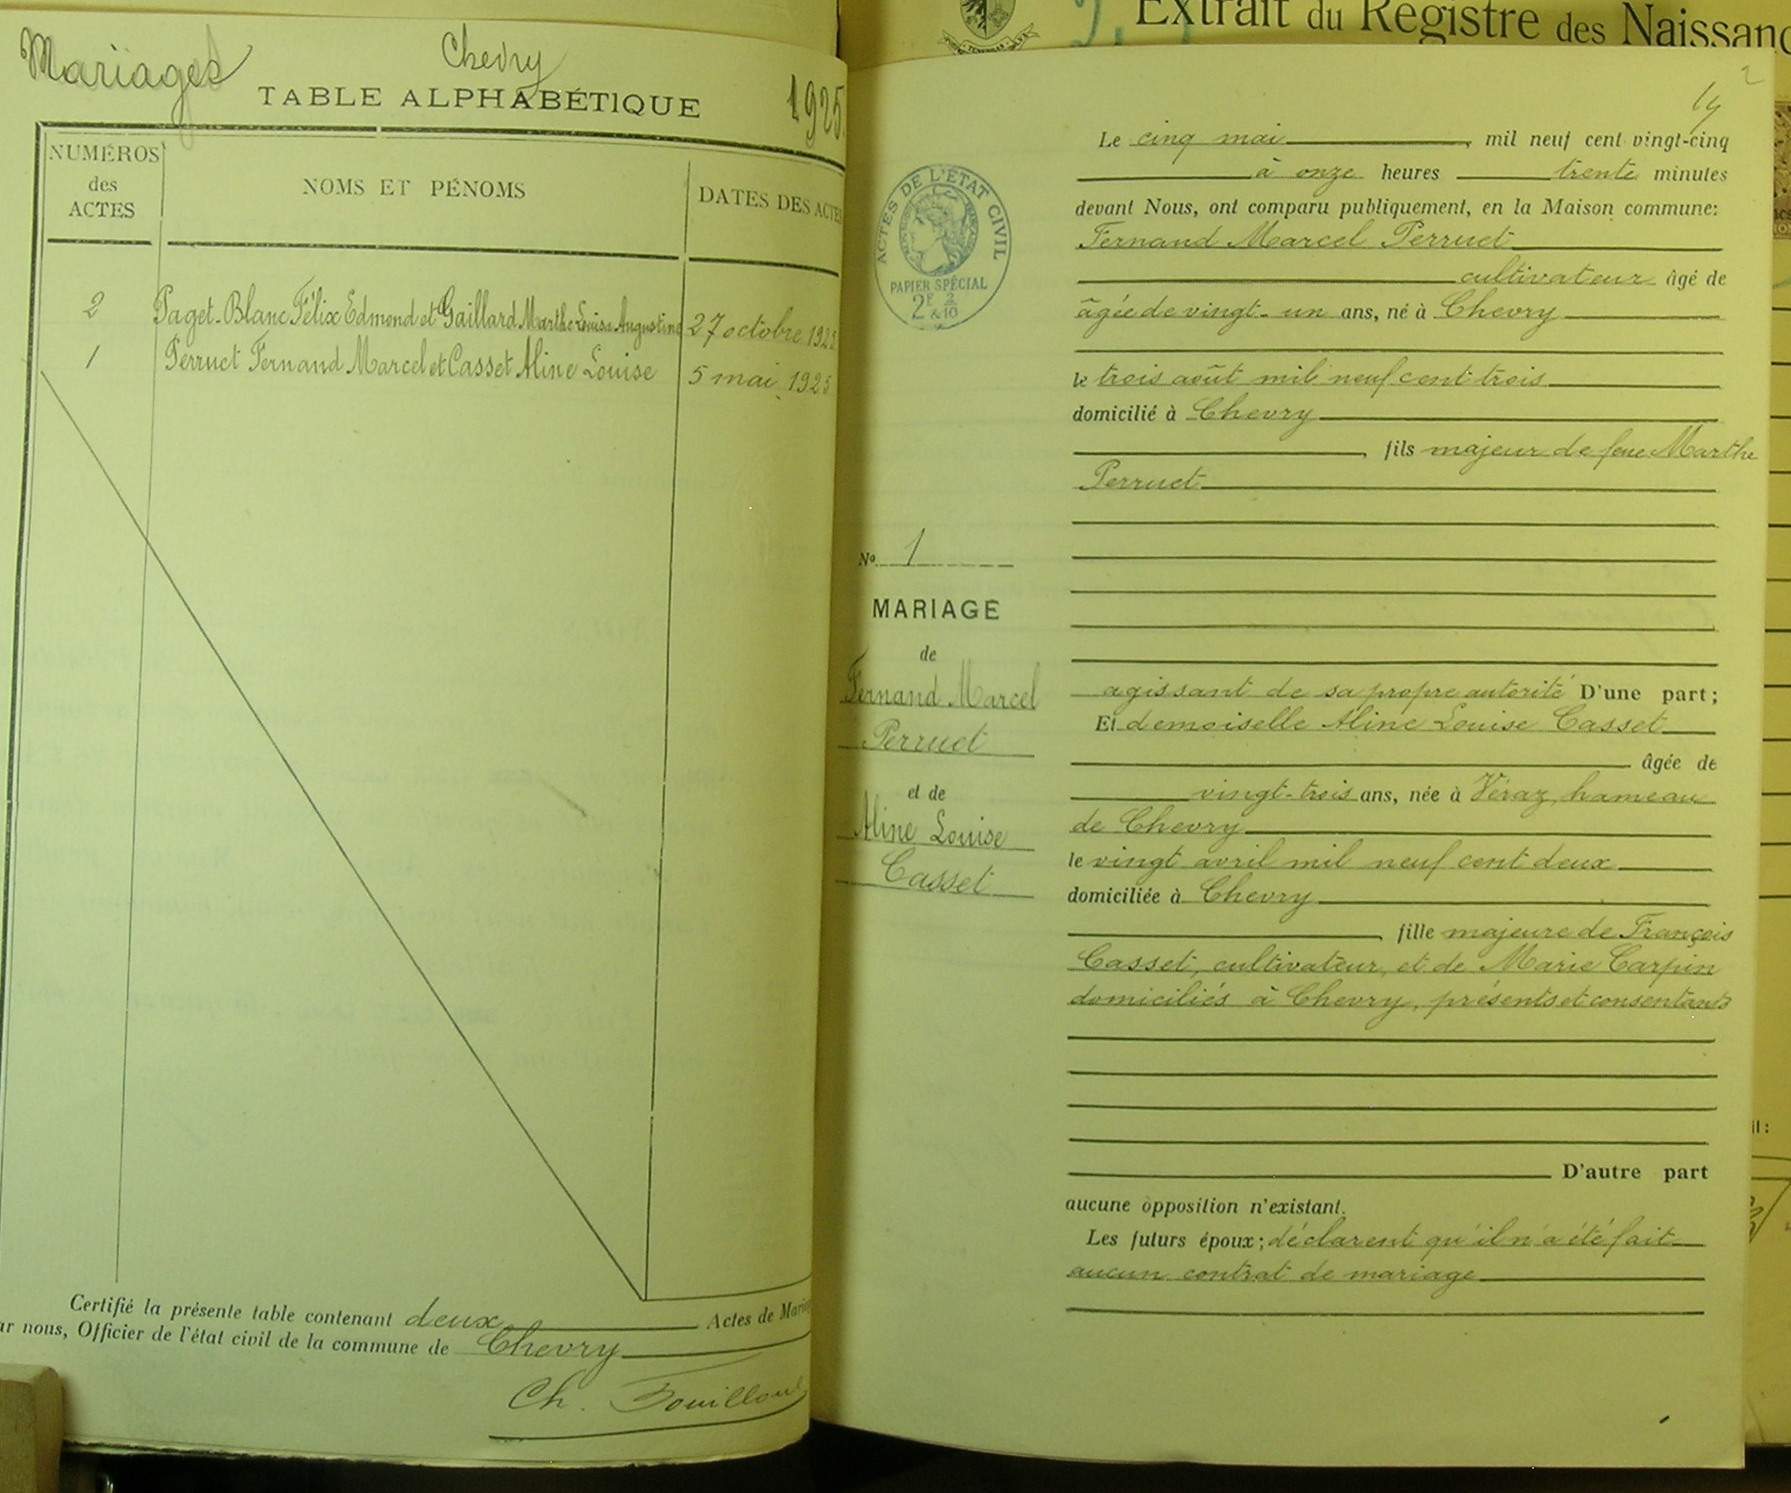 Mariages
Chevry
TABLE ALPHABÉTIQUE
1925.
NUMÉROS
des
ACTES
NOMS ET PÉNOMS
DATES DES ACTES
2 Paget-Blanc Félix Edmond et Gaillard Marthe Louise Augustine 27 octobre 1925
1 Perruet Fernand Marcel et Casset Aline Louise 5 mai 1925
Certifié la présente table contenant deux Actes de Maria
ar nous, Officier de l'état civil de la commune de Chevry
Ch.
Extrait du Registre des Naissanc
2
Le cinq mai, mil neuf cent vingt-cinq
à onze heures trente minutes
devant Nous, ont comparu publiquement, en la Maison commune:
Fernand Marcel Perruet
cultivateur âgé de
âgée de vingt-un ans, né à Chevry
le trois août mil neuf cent trois
domicilié à Chevry
, fils majeur de feue Marthe
Perruet
agissant de sa propre autorité D'une part;
Et demoiselle Aline Louise Casset
âgée de
vingt-trois ans, née à Véraz, hameau
de Chevry
le vingt avril mil neuf cent deux
domiciliée à Chevry
, fille majeure de François
Casset, cultivateur, et de Marie Carpin
domiciliés à Chevry, présents et consentants
D'autre part
aucune opposition n'existant.
Les futurs époux; déclarent qu'il n'a été fait
aucun contrat de mariage
ACTES DE L'ÉTAT CIVIL
PAPIER SPÉCIAL
2F 2
&10
No 1
MARIAGE
de
Fernand Marcel
Perruet
et de
Aline Louise
Casset
il: